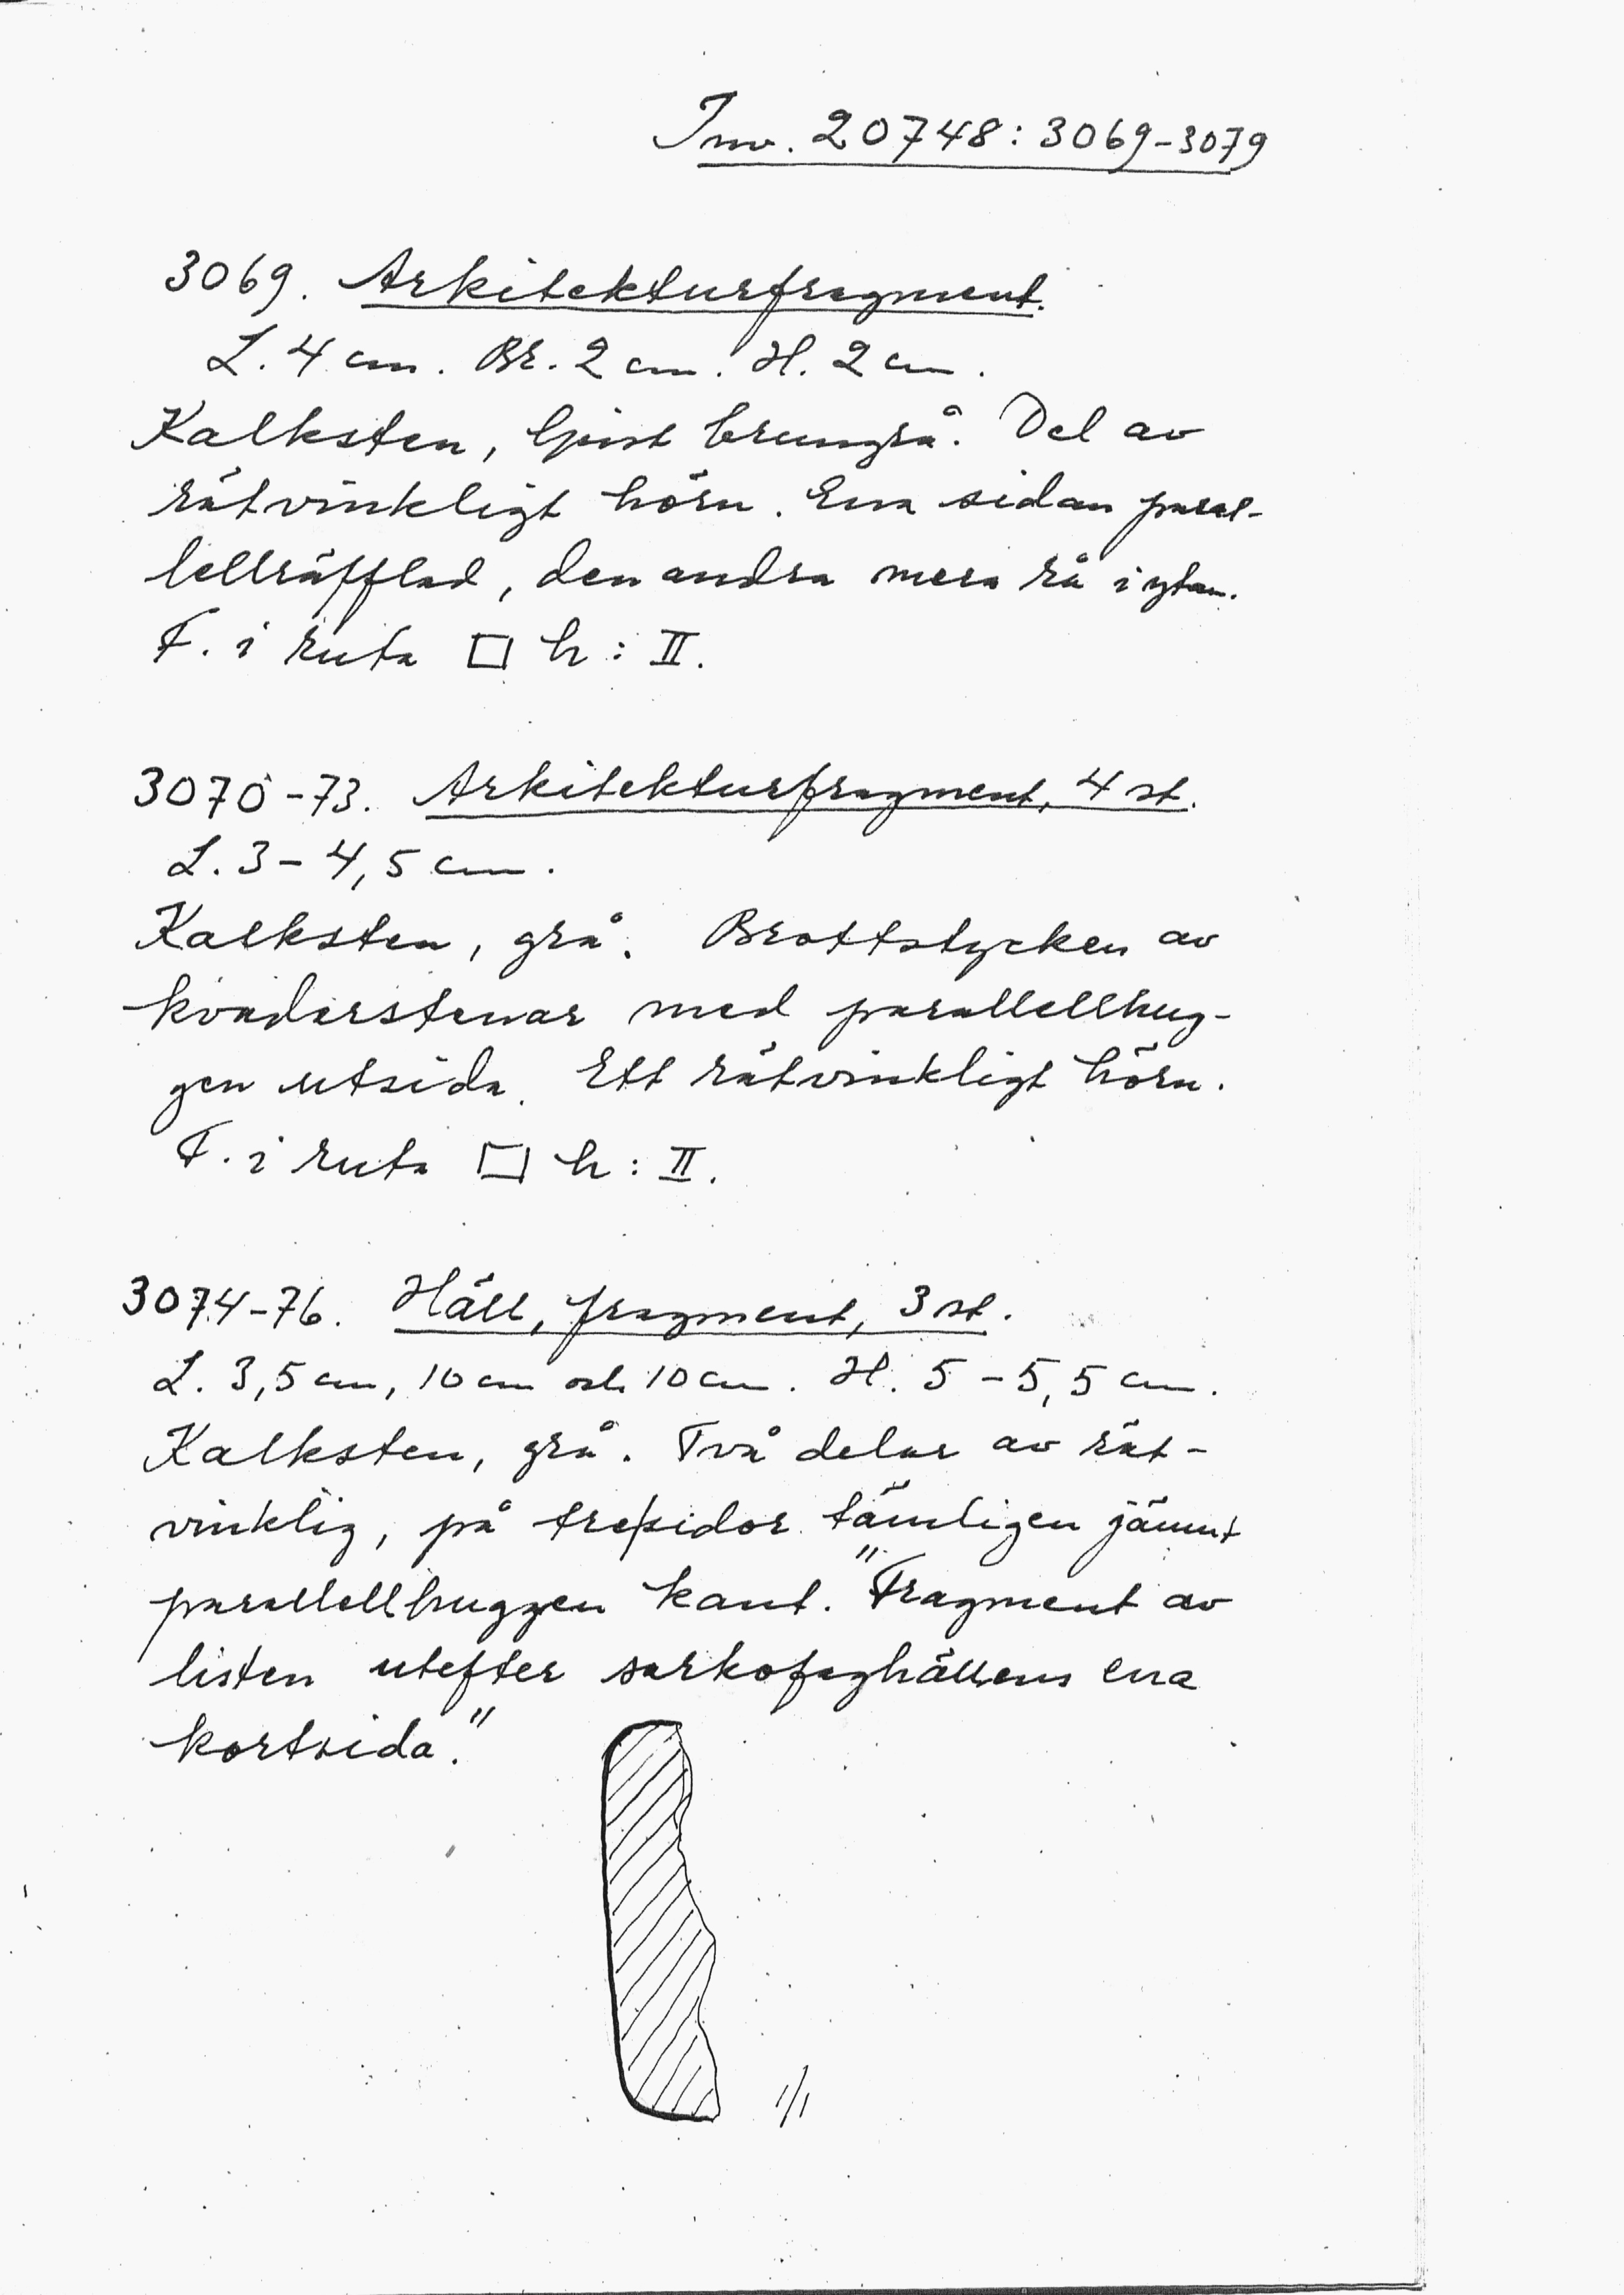 Inv. 20748: 3069-3079
3069. Arkitekturfragment.
L. 4 cm. Br. 2 cm. H. 2 cm.
Kalksten, ljust brungrå. Del av
rätvinkligt hörn. Ena sidan paral-
lellräfflad, den andra mera rå i ytan.
F. i ruta □ h: II.
3070-73. Arkitekturfragment, 4 st.
L. 3-4,5 cm.
Kalksten, grå. Brottstycken av
kvaderstenar med parallellhug-
gen utsida. Ett rätvinkligt hörn.
F. i ruta □ h: II.
3074-76. Häll, fragment, 3 st.
L. 3,5 cm, 10 cm och 10 cm. H. 5-5,5 cm.
Kalksten, grå. Två delar av rät-
vinklig, på tre sidor tämligen jämnt
parallellhuggen kant. "Fragment av
listen utefter sarkofaghällens ena
kortsida."
1/1